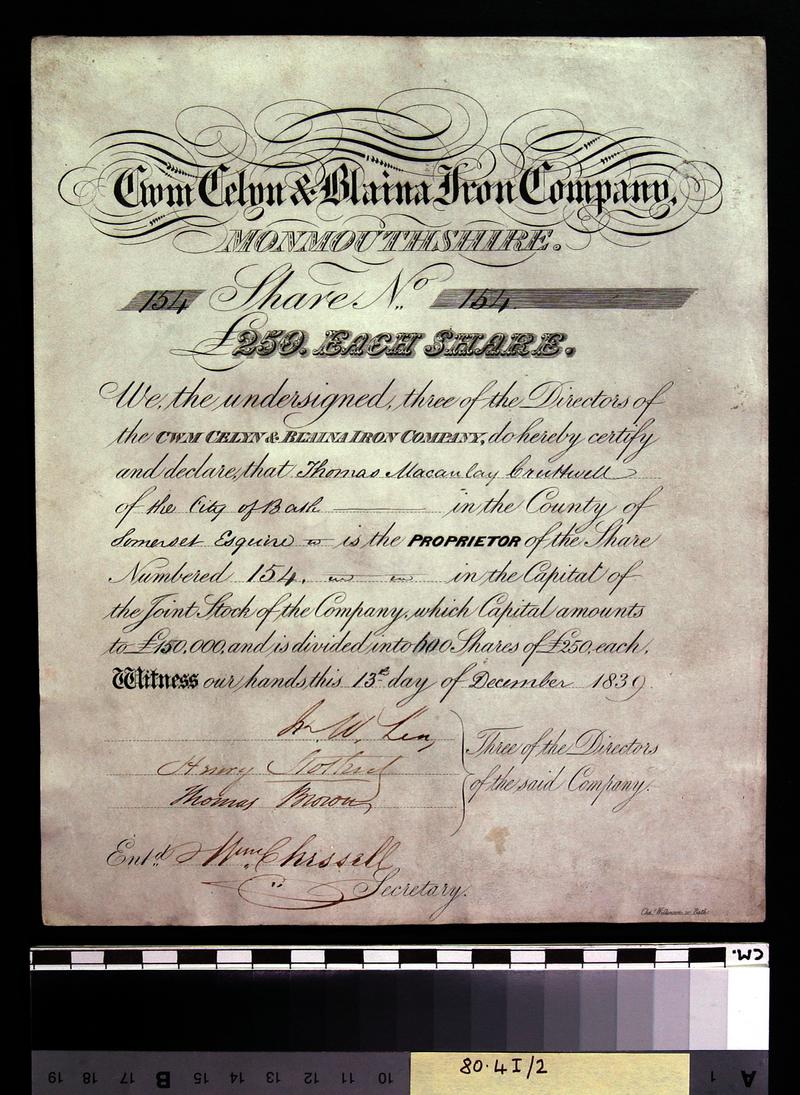 Cwm Celyn & Blaina Iron Company,
MONMOUTHSHIRE.
154 Share No. 154
£250. EACH SHARE.
We, the undersigned, three of the Directors of
the CWM CELYN & BLAINA IRON COMPANY, do hereby certify
and declare, that Thomas Macaulay Cruttwell
of the City of Bath in the County of
Somerset Esquire is the PROPRIETOR of the Share
Numbered 154. in the Capital of
the Joint Stock of the Company, which Capital amounts
to £150,000, and is divided into 600 Shares of £250, each.
Witness our hands, this 13th day of December 1839.
W.
Henry
Thomas Brown
Three of the Directors
of the said Company.
Entd. Wm. Chissell
Secretary.
Chas. Wilkinson, sc. Bath
CM.
19 18 17 B 15 14 13 12 11 10 1 A
80.4I/2